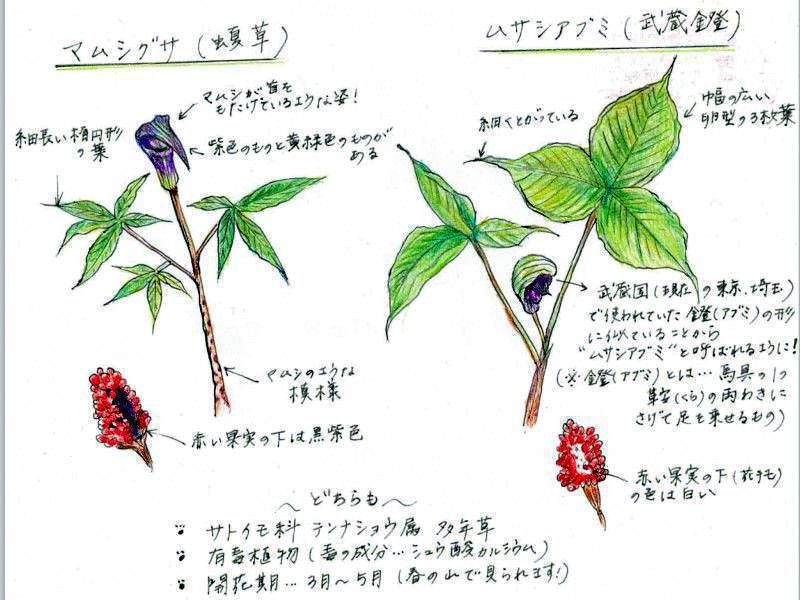 マムシグサ (蝮草)
マムシが首を
もたげているような姿!
細長い楕円形
の葉
紫色のものと黄緑色のものが
ある
マムシのような
模様
赤い果実の下は黒紫色
ムサシアブミ (武蔵鐙)
細くとがっている
幅の広い
卵型の3枚葉
武蔵国(現在の東京、埼玉)
で使われていた鐙(アブミ)の形
に似ていることから
"ムサシアブミ"と呼ばれるように!
(※鐙(アブミ)とは…馬具の1つ
鞍(くら)の両わきに
さげて足を乗せるもの)
赤い果実の下(花チモ)
の色は白い
~どちらも~
サトイモ科 テンナショウ属 多年草
有毒植物(毒の成分…シュウ酸カルシウム)
開花期…3月~5月(春の山で見られます!)